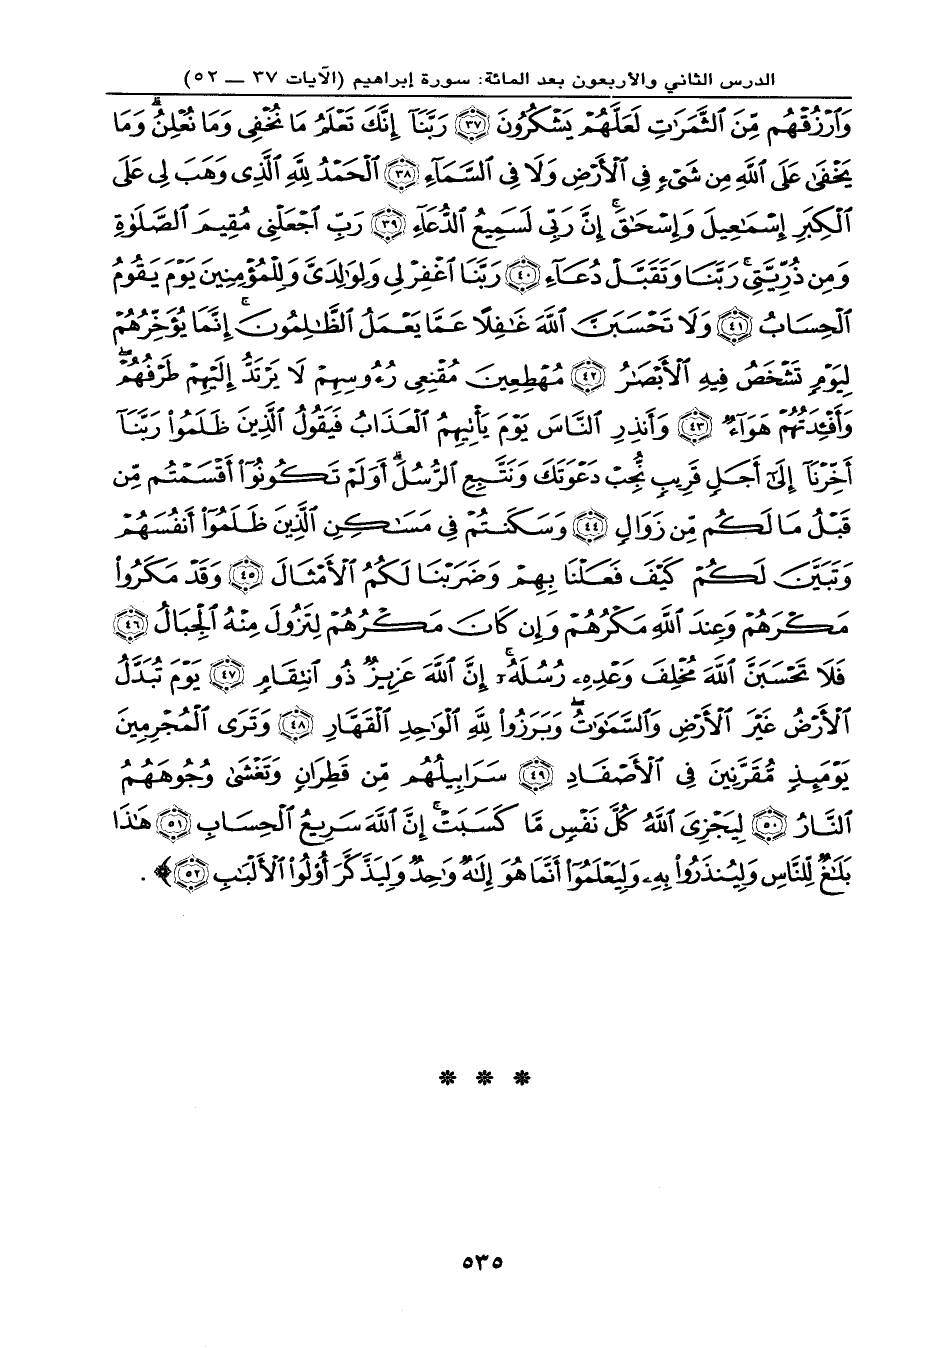 الدرس الثاني والأربعون بعد المائة: سورة إبراهيم (الآيات ٣٧ — ٥٢)
وَٱرْزُقْهُم مِّنَ ٱلثَّمَرَٰتِ لَعَلَّهُمْ يَشْكُرُونَ ٣٧ رَبَّنَآ إِنَّكَ تَعْلَمُ مَا نُخْفِى وَمَا نُعْلِنُ ۗ وَمَا
يَخْفَىٰ عَلَى ٱللَّهِ مِن شَىْءٍ فِى ٱلْأَرْضِ وَلَا فِى ٱلسَّمَآءِ ٣٨ ٱلْحَمْدُ لِلَّهِ ٱلَّذِى وَهَبَ لِى عَلَى
ٱلْكِبَرِ إِسْمَٰعِيلَ وَإِسْحَٰقَ ۚ إِنَّ رَبِّى لَسَمِيعُ ٱلدُّعَآءِ ٣٩ رَبِّ ٱجْعَلْنِى مُقِيمَ ٱلصَّلَوٰةِ
وَمِن ذُرِّيَّتِى ۚ رَبَّنَا وَتَقَبَّلْ دُعَآءِ ٤٠ رَبَّنَا ٱغْفِرْ لِى وَلِوَٰلِدَىَّ وَلِلْمُؤْمِنِينَ يَوْمَ يَقُومُ
ٱلْحِسَابُ ٤١ وَلَا تَحْسَبَنَّ ٱللَّهَ غَٰفِلًا عَمَّا يَعْمَلُ ٱلظَّٰلِمُونَ ۚ إِنَّمَا يُؤَخِّرُهُمْ
لِيَوْمٍ تَشْخَصُ فِيهِ ٱلْأَبْصَٰرُ ٤٢ مُهْطِعِينَ مُقْنِعِى رُءُوسِهِمْ لَا يَرْتَدُّ إِلَيْهِمْ طَرْفُهُمْ ۖ
وَأَفْـِٔدَتُهُمْ هَوَآءٌ ٤٣ وَأَنذِرِ ٱلنَّاسَ يَوْمَ يَأْتِيهِمُ ٱلْعَذَابُ فَيَقُولُ ٱلَّذِينَ ظَلَمُوا۟ رَبَّنَآ
أَخِّرْنَآ إِلَىٰٓ أَجَلٍ قَرِيبٍ نُّجِبْ دَعْوَتَكَ وَنَتَّبِعِ ٱلرُّسُلَ ۗ أَوَلَمْ تَكُونُوٓا۟ أَقْسَمْتُم مِّن
قَبْلُ مَا لَكُم مِّن زَوَالٍ ٤٤ وَسَكَنتُمْ فِى مَسَٰكِنِ ٱلَّذِينَ ظَلَمُوٓا۟ أَنفُسَهُمْ
وَتَبَيَّنَ لَكُمْ كَيْفَ فَعَلْنَا بِهِمْ وَضَرَبْنَا لَكُمُ ٱلْأَمْثَالَ ٤٥ وَقَدْ مَكَرُوا۟
مَكْرَهُمْ وَعِندَ ٱللَّهِ مَكْرُهُمْ وَإِن كَانَ مَكْرُهُمْ لِتَزُولَ مِنْهُ ٱلْجِبَالُ ٤٦
فَلَا تَحْسَبَنَّ ٱللَّهَ مُخْلِفَ وَعْدِهِۦ رُسُلَهُۥٓ ۗ إِنَّ ٱللَّهَ عَزِيزٌ ذُو ٱنتِقَامٍ ٤٧ يَوْمَ تُبَدَّلُ
ٱلْأَرْضُ غَيْرَ ٱلْأَرْضِ وَٱلسَّمَٰوَٰتُ ۖ وَبَرَزُوا۟ لِلَّهِ ٱلْوَٰحِدِ ٱلْقَهَّارِ ٤٨ وَتَرَى ٱلْمُجْرِمِينَ
يَوْمَئِذٍ مُّقَرَّنِينَ فِى ٱلْأَصْفَادِ ٤٩ سَرَابِيلُهُم مِّن قَطِرَانٍ وَتَغْشَىٰ وُجُوهَهُمُ
ٱلنَّارُ ٥٠ لِيَجْزِىَ ٱللَّهُ كُلَّ نَفْسٍ مَّا كَسَبَتْ ۚ إِنَّ ٱللَّهَ سَرِيعُ ٱلْحِسَابِ ٥١ هَٰذَا
بَلَٰغٌ لِّلنَّاسِ وَلِيُنذَرُوا۟ بِهِۦ وَلِيَعْلَمُوٓا۟ أَنَّمَا هُوَ إِلَٰهٌ وَٰحِدٌ وَلِيَذَّكَّرَ أُو۟لُوا۟ ٱلْأَلْبَٰبِ ٥٢ ﴾ .
* * *
٥٣٥